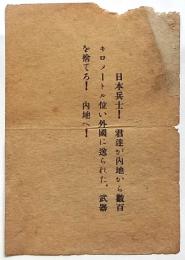 日本兵士！　君達が内地から數百
キロメートル位い外國に送られた。武器
を捨てろ！　内地へ！